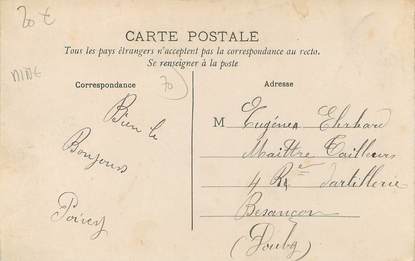 20 €
CARTE POSTALE
Tous les pays étrangers n'acceptent pas la correspondance au recto.
Se renseigner à la poste
Correspondance
70
Adresse
Bien le
Bonjour
M Eugène Ehrhard
Maittre Tailleurs
4 Re d'artillerie
Besançon
(Doubs)